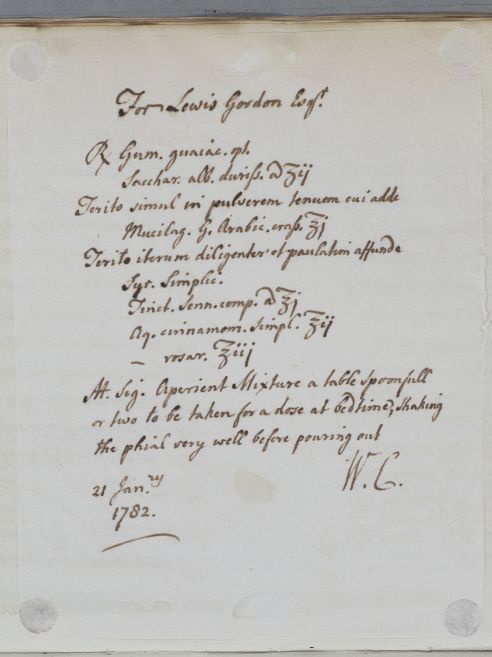 For Lewis Gordon Esqr.
℞ Gum. guaiac. opt.
Sacchar. alb. duriss. a ʒij
Terito simul in pulverem tenuem cui adde
Mucilag. G. Arabic. crass. ℥j
Terito iterum diligenter et paulatim affunde
Syr. Simplic.
Tinct. Senn. comp. a ℥j
Aq. cinnamom. simpl. ℥ij
— rosar. ℥iij
M. Sig. Aperient Mixture a table spoonfull
or two to be taken for a dose at bedtime, Shaking
the phial very well before pouring out
W. C.
21 Janry
1782.